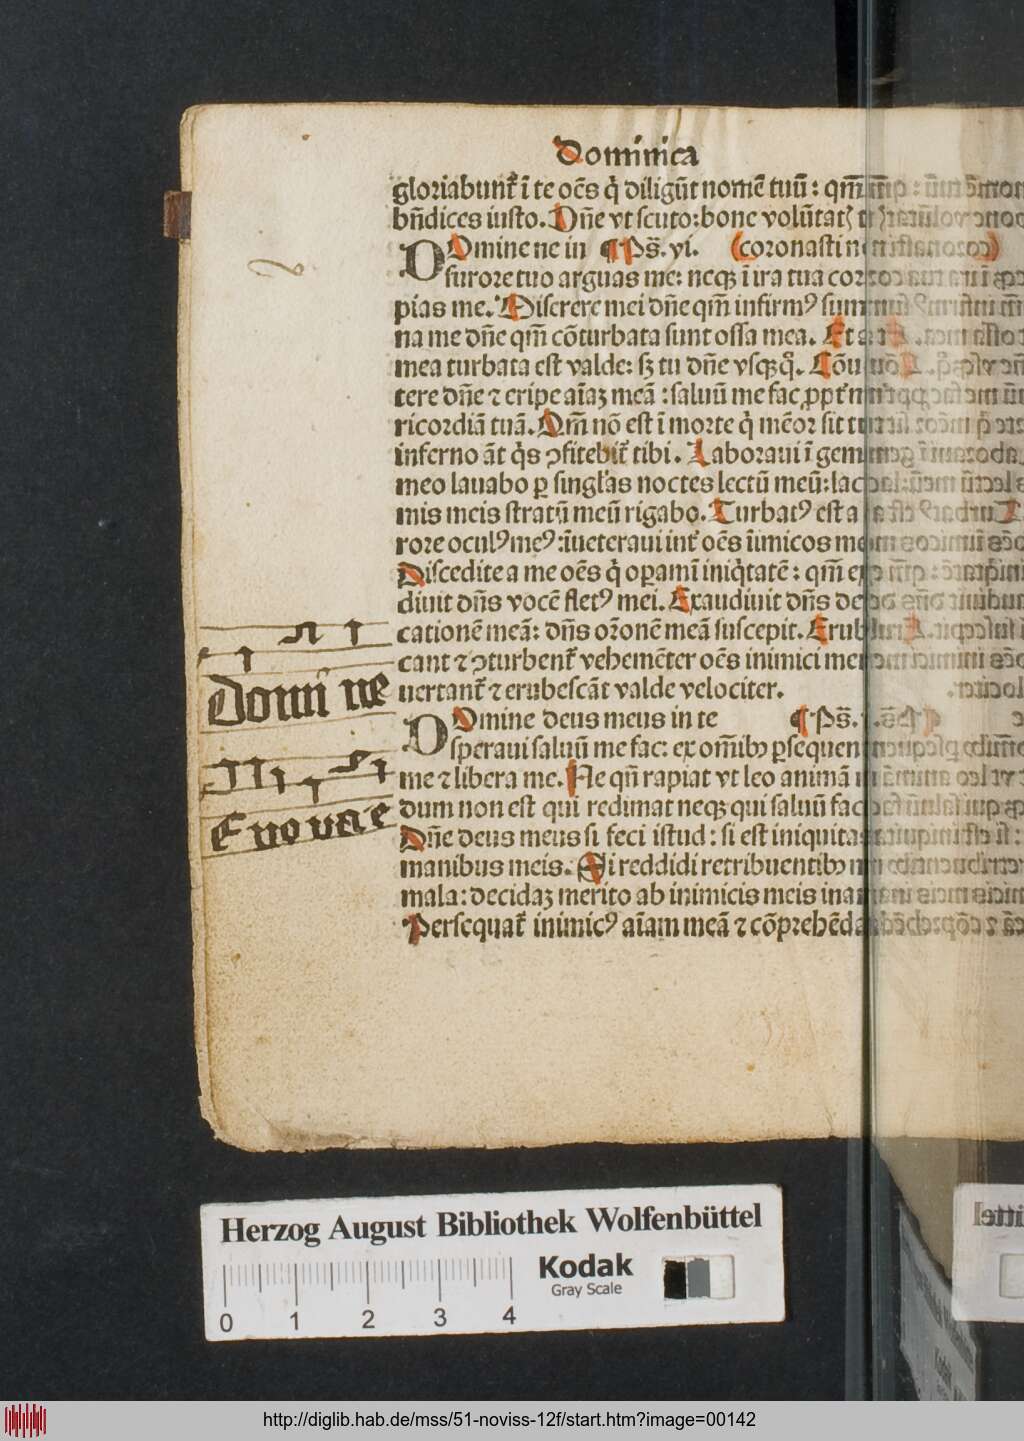 Dominica
gloriabunt᷑ ī te oēs q̇ diligūt nomē tuū: qm̄
bn̄dices iusto. Dn̄e vt scuto: bone volūtatꝭ
DOmine ne in ¶ Ps̄. vi. (coronasti n
furore tuo arguas me: neqꝫ ī ira tua cor
pias me. Miserere mei dn̄e qm̄ infirmꝰ sum
na me dn̄e qm̄ cōturbata sunt ossa mea. Et
mea turbata est valde: sꝫ tu dn̄e vsqꝫ q̊. Cōu
tere dn̄e ⁊ eripe aīaꝫ meā: saluū me fac ꝓpt᷑
ricordiā tuā. Qm̄ nō est ī morte q̇ mēor sit
inferno āt q̇s ꝯfitebit᷑ tibi. Laboraui ī gem
meo lauabo ꝑ singl̓as noctes lectū meū: lac
mis meis stratū meū rigabo. Turbatꝰ est a
rore oculꝰ meꝰ: īueteraui int᷑ oēs īimicos
Discedite a me oēs q̇ oꝑamī iniq̇tatē: qm̄ ex
diuit dn̄s vocē fletꝰ mei. Exaudiuit dn̄s de
cationē meā: dn̄s or̄onē meā suscepit. Erub
cant ⁊ ꝯturbent᷑ vehemēter oēs inimici mei
uertant᷑ ⁊ erubescāt valde velociter.
DOmine deus meus in te ¶ Ps̄.
speraui saluū me fac: ex om̄ibꝰ ꝑsequen
me ⁊ libera me. Ne qn̄ rapiat vt leo animā
dum non est qui redimat neqꝫ qui saluū fac
Dn̄e deus meus si feci istud: si est iniquitas
manibus meis. Si reddidi retribuentibꝰ
mala: decidaꝫ merito ab inimicis meis ina
Persequat᷑ inimicꝰ aīam meā ⁊ cōprehēda
Domī ne
E v o v a e
Herzog August Bibliothek Wolfenbüttel
Kodak
Gray Scale
0 1 2 3 4
http://diglib.hab.de/mss/51-noviss-12f/start.htm?image=00142